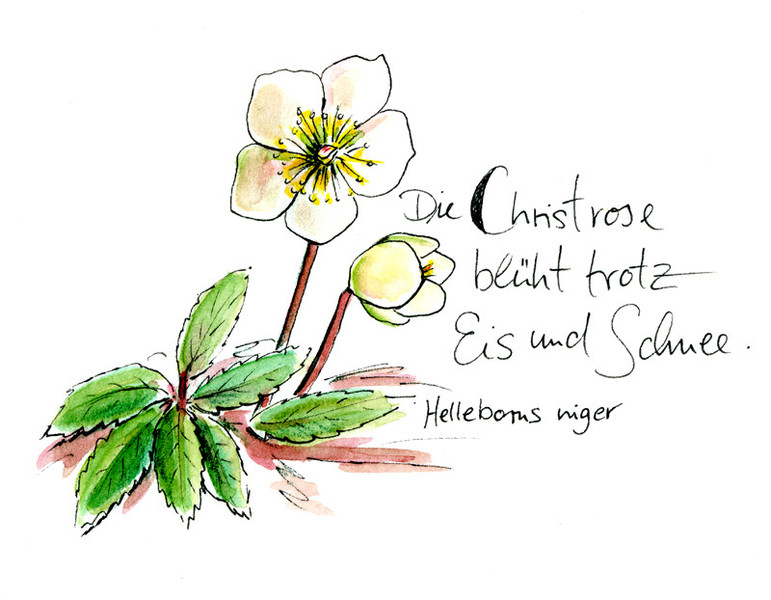 Die Christrose
blüht trotz
Eis und Schnee.
Helleborus niger